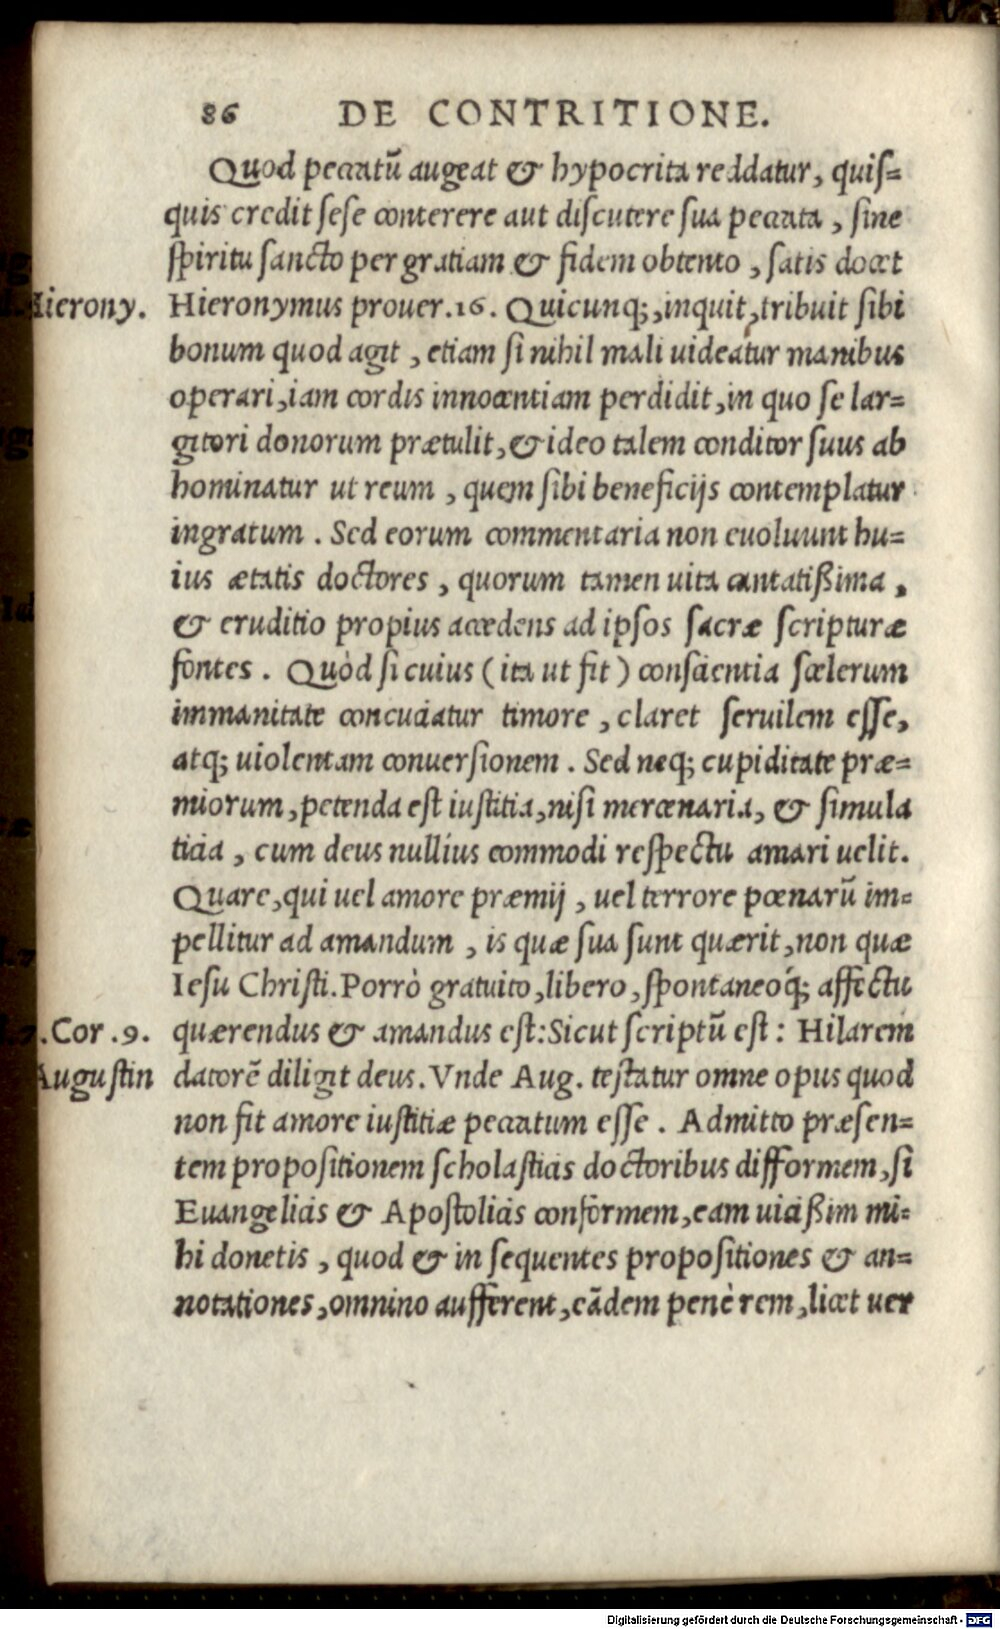 86 DE CONTRITIONE.
Quod peccatū augeat & hypocrita reddatur, quiſ=
quis credit ſeſe conterere aut diſcutere ſua peccata, ſine
ſpiritu ſancto per gratiam & fidem obtento, ſatis docet
Hierony. Hieronymus prouer.16. Quicunq;, inquit, tribuit ſibi
bonum quod agit, etiam ſi nihil mali uideatur manibus
operari, iam cordis innocentiam perdidit, in quo ſe lar=
gitori donorum prætulit, & ideo talem conditor ſuus ab
hominatur ut reum, quem ſibi beneficijs contemplatur
ingratum. Sed eorum commentaria non euoluunt hu=
ius ætatis doctores, quorum tamen uita cantatiſsima,
& eruditio propius accedens ad ipſos ſacræ ſcripturæ
fontes. Quòd ſi cuius (ita ut fit) conſcientia ſcelerum
immanitate concuciatur timore, claret ſeruilem eſſe,
atq; uiolentam conuerſionem. Sed neq; cupiditate præ=
miorum, petenda eſt iuſtitia, niſi mercenaria, & ſimula
ticia, cum deus nullius commodi reſpectu amari uelit.
Quare, qui uel amore præmij, uel terrore pœnarū im=
pellitur ad amandum, is quæ ſua ſunt quærit, non quæ
Ieſu Chriſti. Porrò gratuito, libero, ſpontaneoq́; affectu
.Cor.9. quærendus & amandus eſt: Sicut ſcriptū eſt: Hilarem
Auguſtin datorē diligit deus. Vnde Aug. teſtatur omne opus quod
non fit amore iuſtitiæ peccatum eſſe. Admitto præſen=
tem propoſitionem ſcholaſticis doctoribus difformem, ſi
Euangelicis & Apoſtolicis conformem, eam uiciſsim mi=
hi donetis, quod & in ſequentes propoſitiones & an=
notationes, omnino aufferent, eādem penè rem, licet uer
Digitalisierung gefördert durch die Deutsche Forschungsgemeinschaft - DFG